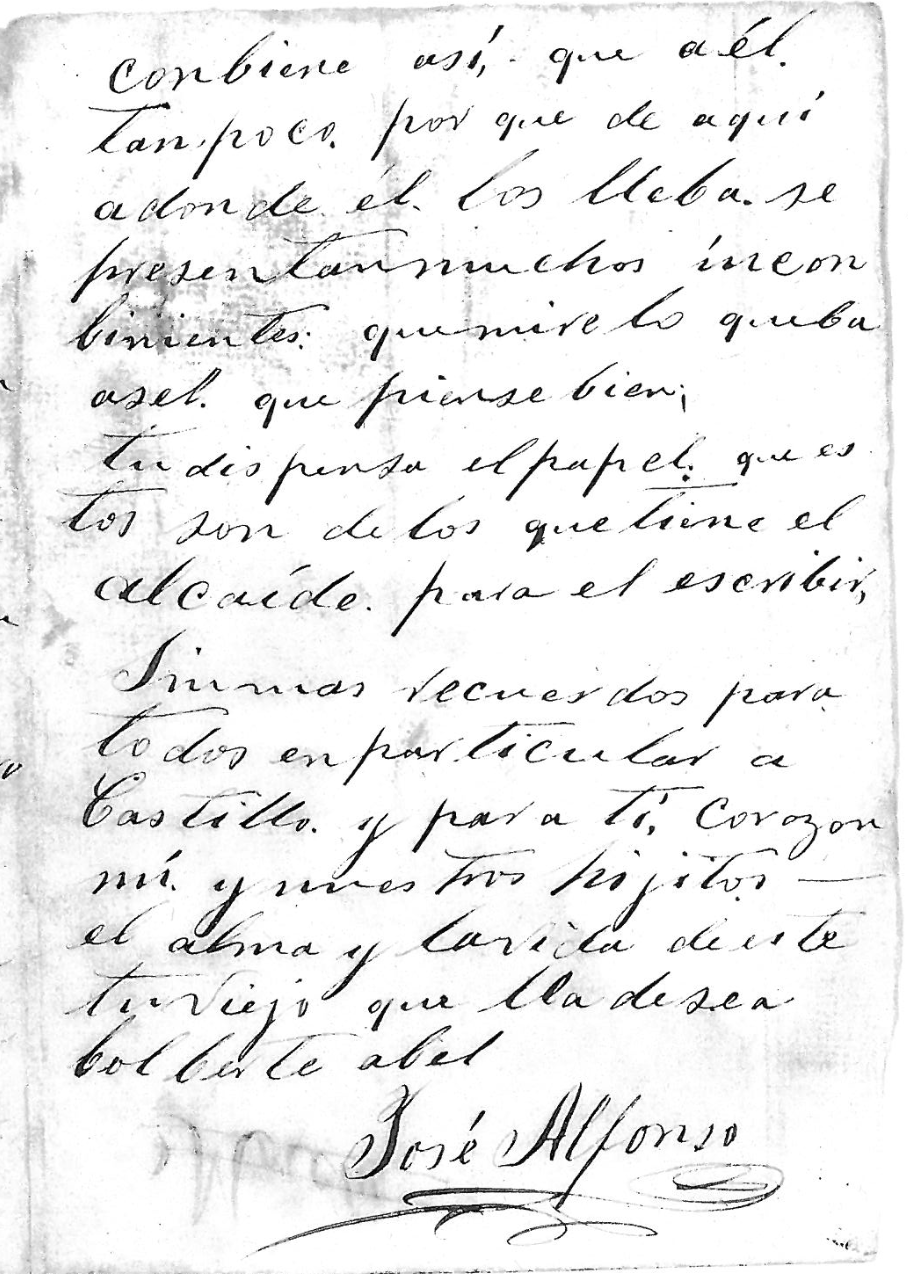 conbiene así, que a él.
tanpoco. por que de aquí
adonde él. los lleba. se
presentan muchos íncon
binientes: que mire lo que ba
aser. que piense bien;
tu dispensa el papel. que es
tos son de los que tiene el
alcaíde. para el escribir,
Sin mas recuerdos para
todos en particular a
Castillo. y para tí, Corazon
mí. y nuestros hijitos —
el alma y la vida de este
tu Viejo que lla desea
bolberte aber
José Alfonso